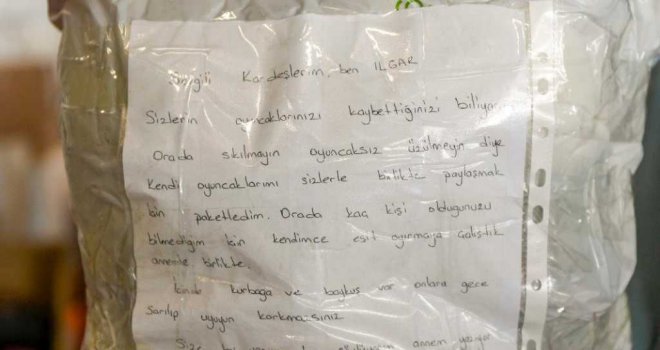 Sevgili Kardeşlerim, ben ILGAR
Sizlerin oyuncaklarınızı kaybettiğinizi biliyor
Orada sıkılmayın oyuncaksız üzülmeyin diye
Kendi oyuncaklarımı sizlerle birlikte paylaşmak
için paketledim. Orada kaç kişi olduğunuzu
bilmediğim için kendimce eşit ayırmaya çalıştık
annemle birlikte.
İçinde kurbağa ve baykuş var onlara gece
sarılıp uyuyun korkmazsınız
annem yazıyor